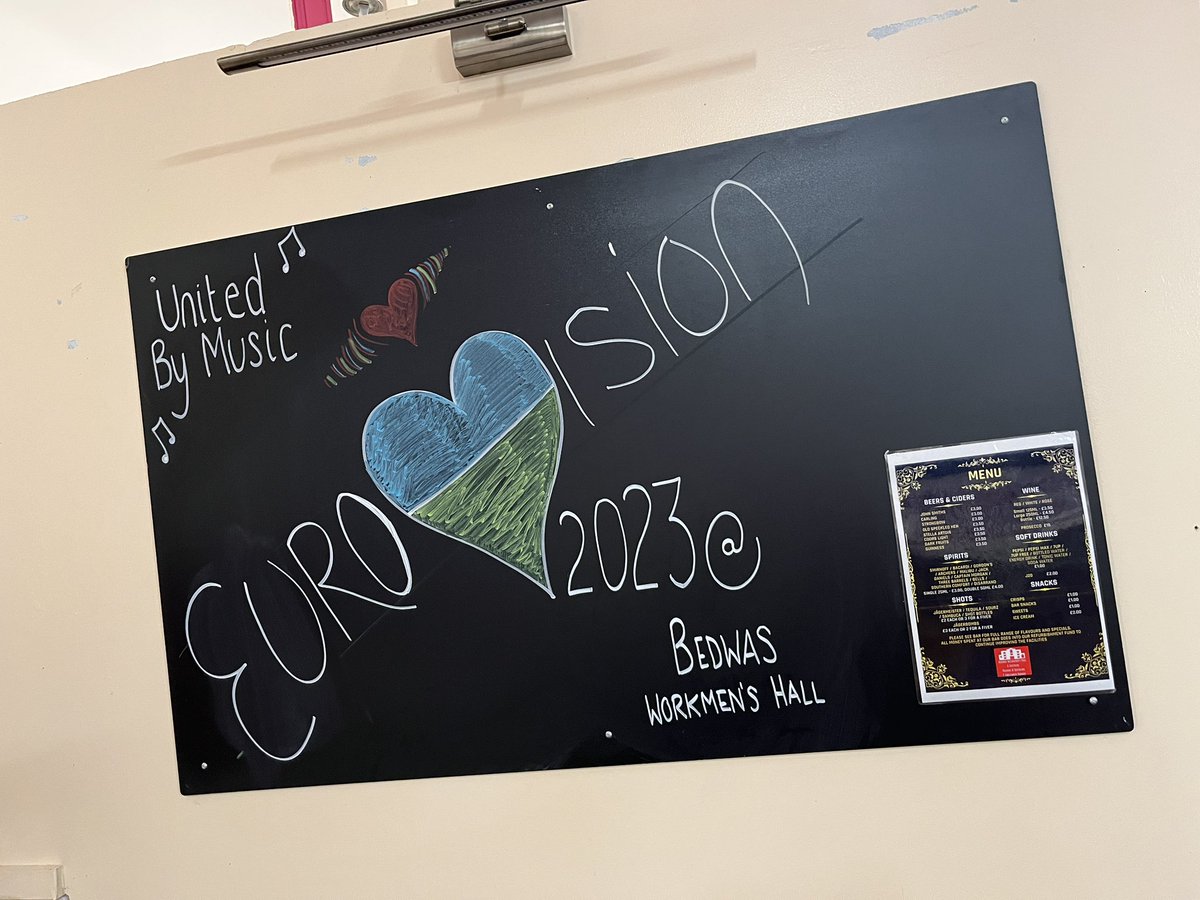 United
By Music
EURO ision
2023@
BEDWAS
WORKMEN'S HALL
MENU
BEERS & CIDERS
JOHN SMITHS £3.00
CARLING
STRONGBOW
OLD SPECKLED HEN
STELLA ARTOIS
COORS LIGHT
DARK FRUITS
GUINNESS
SPIRITS
SMIRNOFF / BACARDI / GORDON'S
/ ARCHERS / MALIBU / JACK
DANIELS / CAPTAIN MORGAN /
THREE BARRELS / BELLS /
SOUTHERN COMFORT / DISARRANO
SINGLE 25ML - £3.00, DOUBLE 50ML £4.00
SHOTS
JÄGERMEISTER / TEQUILA / SOURZ
/ SAMBUCA / SHOT BOTTLES
£2 EACH OR 3 FOR A FIVER
JÄGERBOMBS
£3 EACH OR 2 FOR A FIVER
WINE
RED / WHITE / ROSÉ
Small 125ML - £3.50
Large 250ML - £4.50
Bottle - £12.50
PROSECCO £15
SOFT DRINKS
PEPSI / PEPSI MAX / 7UP /
7UP FREE / BOTTLED WATER /
ENERGY DRINK / TONIC WATER /
SODA WATER
£1.50
J2O £2.00
SNACKS
CRISPS £1.00
BAR SNACKS £1.00
SWEETS £1.00
ICE CREAM £2.00
PLEASE SEE BAR FOR FULL RANGE OF FLAVOURS AND SPECIALS.
ALL MONEY SPENT AT OUR BAR GOES INTO OUR REFURBISHMENT FUND TO
CONTINUE IMPROVING THE FACILITIES